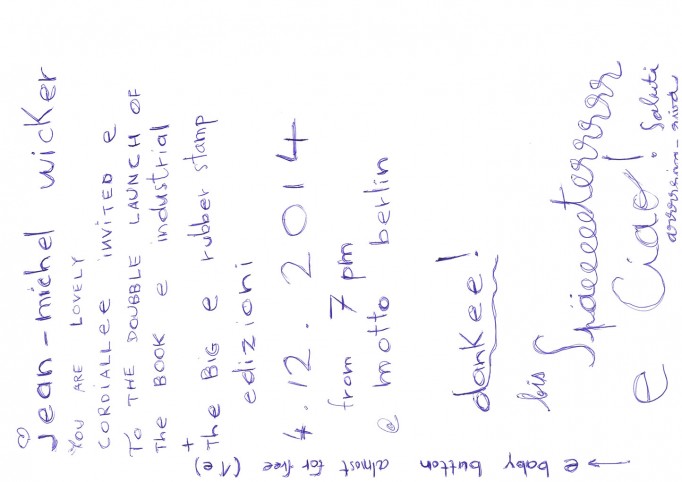 Jean-michel wicker
YOU ARE LOVELY
CORDIALLEE INVITED e
TO THE DOUBBLE LAUNCH OF
The BOOK e industrial
+
The BIG e rubber stamp
edizioni
4.12.2014
from 7 pm
@ motto berlin
dankee!
bis Späeeeeterrrrrr
e Ciao! Saluti
→ e baby button almost for free (1e)